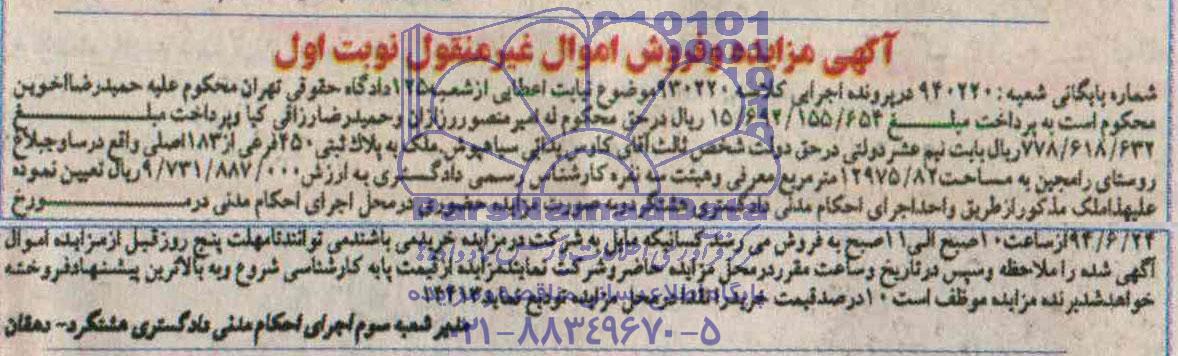 آگهی مزایده وفروش اموال غیرمنقول نوبت اول
شماره بایگانی شعبه: ۹۴۰۲۲۰ درپرونده اجرایی کلاسه ۹۳۰۲۲۰ موضوع نیابت اعطایی ازشعبه ۱۲۵ دادگاه حقوقی تهران محکوم علیه حمیدرضااخوین
محکوم است به پرداخت مبلغ ۱۵/۶۹۲/۱۵۵/۶۵۴ ریال درحق محکوم له امیرمنصوررزازان وحمیدرضارزاقی کیا وپرداخت مبلغ
۷۷۸/۶۱۸/۶۳۲ریال بابت نیم عشردولتی درحق دولت شخص ثالث آقای کاوس یدایی سیاهپوش ملک به پلاک ثبتی ۴۵۰فرعی از۱۸۳اصلی واقع درساوجبلاغ
روستای رامجین به مساحت۱۲۹۷۵/۸۲مترمربع معرفی وهیئت سه نفره کارشناس رسمی دادگستری به ارزش ۹/۷۳۱/۸۸۷/۰۰۰ریال تعیین نموده
علیهذاملک مذکورازطریق واحداجرای احکام مدنی دادگستری هشتگردبه صورت مزایده حضوری درمحل اجرای احکام مدنی درمورخ
۹۴/۶/۲۴ازساعت۱۰صبح الی۱۱صبح به فروش می رسد کسانیکه مایل به شرکت درمزایده خریدمی باشندمی توانندتامهلت پنج روزقبل ازمزایده اموال
آگهی شده راملاحظه وسپس درتاریخ وساعت مقرردرمحل مزایده حاضروشرکت نمایندمزایده ازقیمت پایه کارشناسی شروع وبه بالاترین پیشنهادفروخته
خواهدشدبرنده مزایده موظف است ۱۰درصدقیمت خریدرانقدا درمحل مزایده تودیع نماید
مدیر شعبه سوم اجرای احکام مدنی دادگستری هشتگرد- دهقان
ParsNamadData
پایگاه اطلاع رسانی مناقصه و مزایده
۰۲۱-۸۸۳۴۹۶۷۰-۵